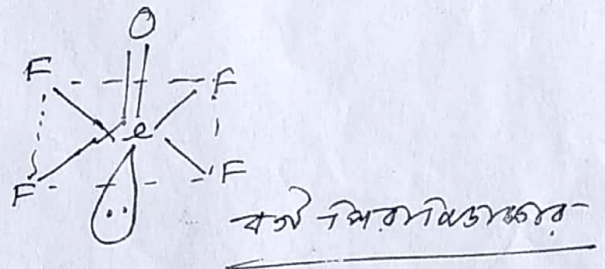 O
F F
Xe
F F
বর্গ পিরামিডাকার